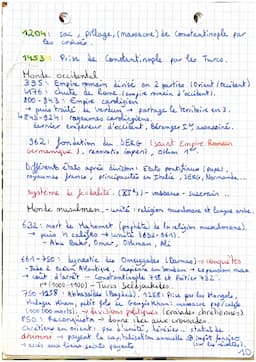 1204: sac, pillage, (massacre) de Constantinople par les croisés.
1453: Prise de Constantinople par les Turcs.
Monde occidental
395: Empire romain divisé en 2 parties (Orient/occident)
476: Chute de Rome (empire romain d'occident).
800-843: Empire carolingien
→ puis traité de Verdun → partage le territoire en 3.
843-924: royaumes carolingiens.
dernier empereur d'occident, Béranger 1er assassiné.
962: fondation du SERG (Saint Empire Romain
Germanique), renovatio imperii, Othon 1er
Différents états après division: Etats pontificaux (pape),
royaumes francs, principautés en Italie, SERG, Normandie...
Système de féodalité (XIe s) - vassaux - suzerain..
Monde musulman - unité: religion musulmane et langue arabe.
632: mort de Mahomet (prophète de la religion musulmane).
→ puis 4 califes → unité (632-661).
- Abu Bakr, Omar, Othman, Ali
661-750: dynastie des Omeyyades (Damas) → conquêtes
1000-1100) - Turcs Seldjoukides.
750-1258: Abbassides (Bagdad). 1258: Prise par les Mongols,
→ divisions politiques (croisades chrétiennes)
850: Reconquista
Chrétiens en orient: pas d'unité, hérésies.. statut de
dhimmi → payent la capitation annuelle
→ accès aux lieux saints payants